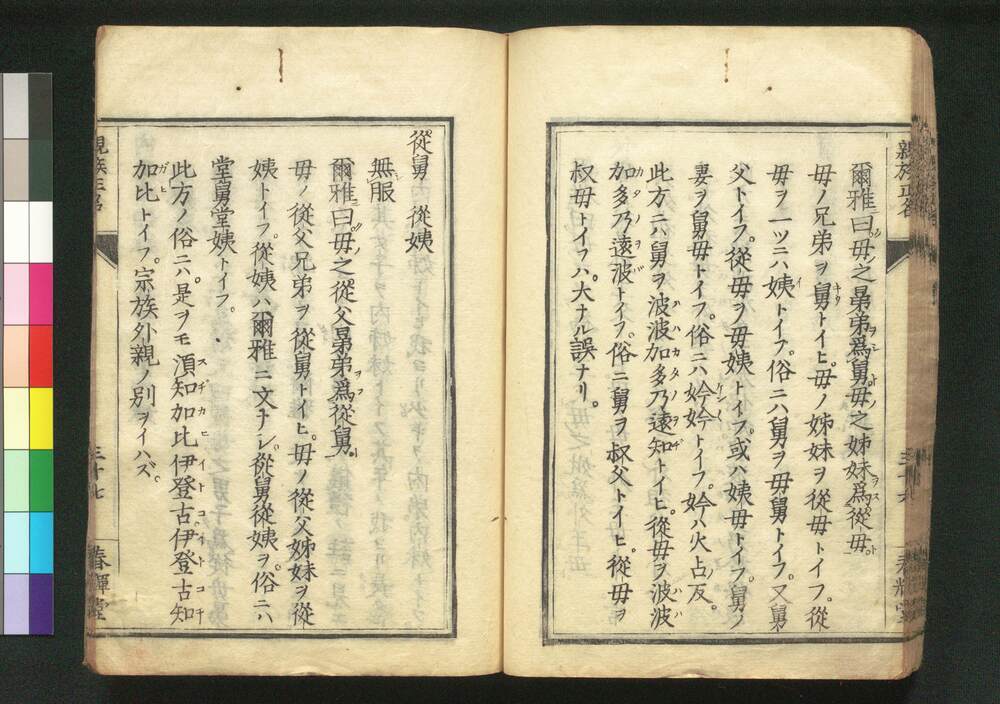 爾雅曰。母之晜弟爲舅。母之姊妹爲從母。
母ノ兄弟ヲ舅トイヒ。母ノ姊妹ヲ從母トイフ。從
母ヲ一ツニハ姨トイフ。俗ニハ舅ヲ母舅トイフ。又舅
父トイフ。從母ヲ母姨トイフ。或ハ姨母トイフ。舅ノ
妻ヲ舅母トイフ。俗ニハ妗妗トイフ。妗ハ火占反。
此方ニハ舅ヲ波波加多乃遠知トイヒ。從母ヲ波波
加多乃遠波トイフ。俗ニ舅ヲ叔父トイヒ。從母ヲ
叔母トイフハ。大ナル誤ナリ。
親族正名
三十六
春輝堂
從舅 從姨
無服
爾雅曰。母之從父晜弟爲從舅。
母ノ從父兄弟ヲ從舅トイヒ。母ノ從父姊妹ヲ從
姨トイフ。從姨ハ爾雅ニ文ナシ。從舅從姨ヲ。俗ニハ
堂舅堂姨トイフ。
此方ノ俗ニハ。是ヲモ湏知加比伊登古伊登古知
加比トイフ。宗族外親ノ別ヲイハズ。
親族正名
三十七
春輝堂